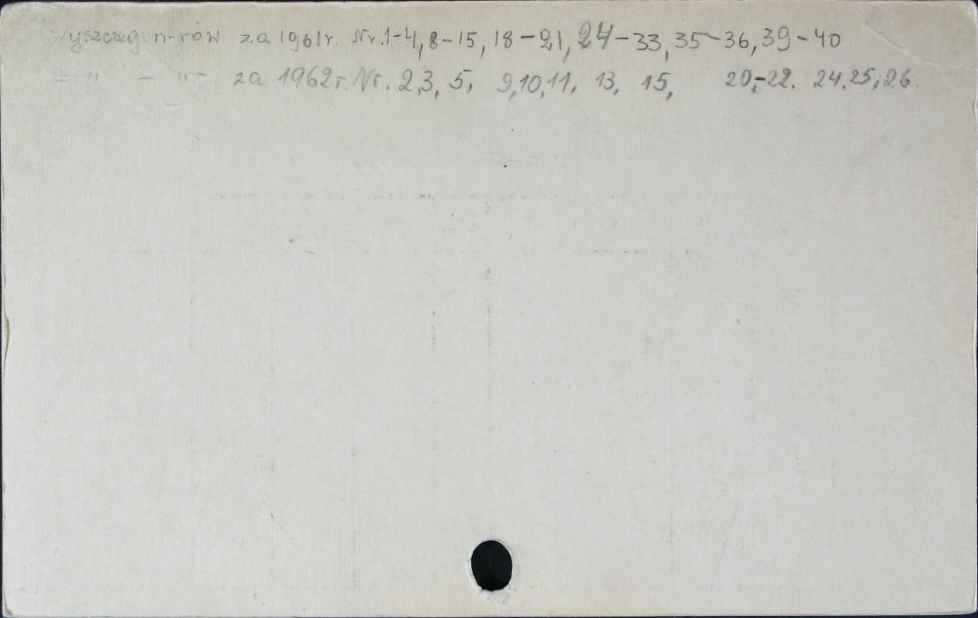 Wyszczeg n-rów za 1961r. Nr. 1-4, 8-15, 18-21, 24-33, 35-36, 39-40
- " - - " - za 1962r. Nr. 2,3, 5, 9,10,11, 13, 15, 20,-22. 24.25,26.